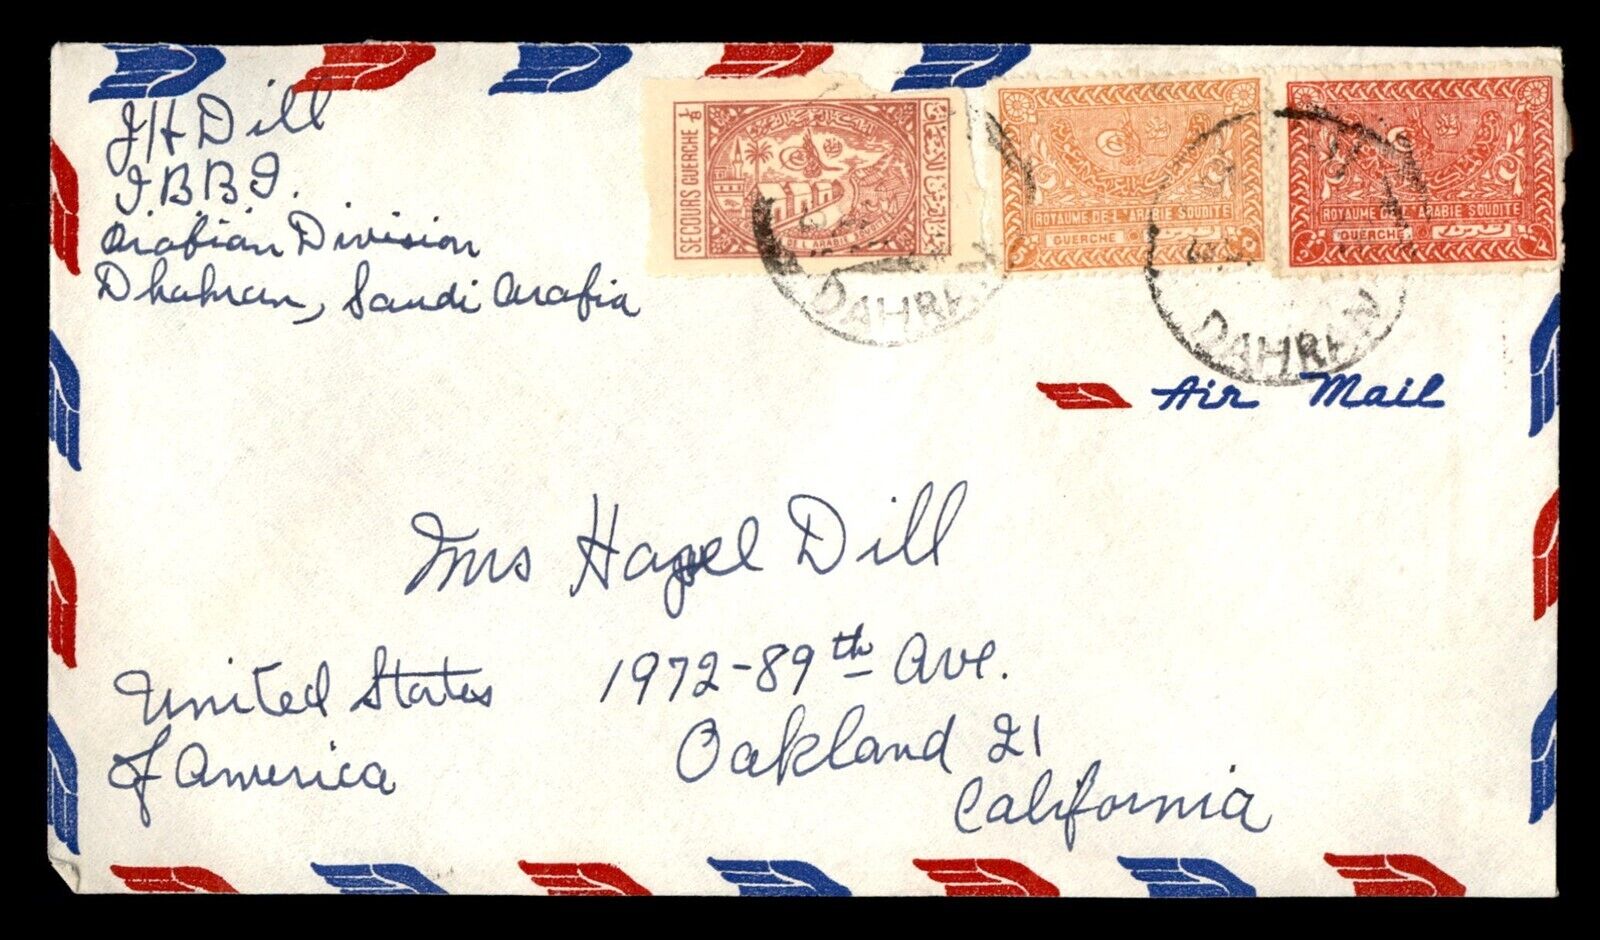 J H Dill
I.B.B.I.
Arabian Division
Dhahran, Saudi Arabia
SECOURS GUERCHE 1/8
DE L'ARABIE SOUDITE
ROYAUME DE L'ARABIE SOUDITE
GUERCHE
ROYAUME DE L'ARABIE SOUDITE
GUERCHE
DAHRAN
DAHRAN
Air Mail
Mrs Hazel Dill
1972-89th Ave.
Oakland 21
California
United States
of America